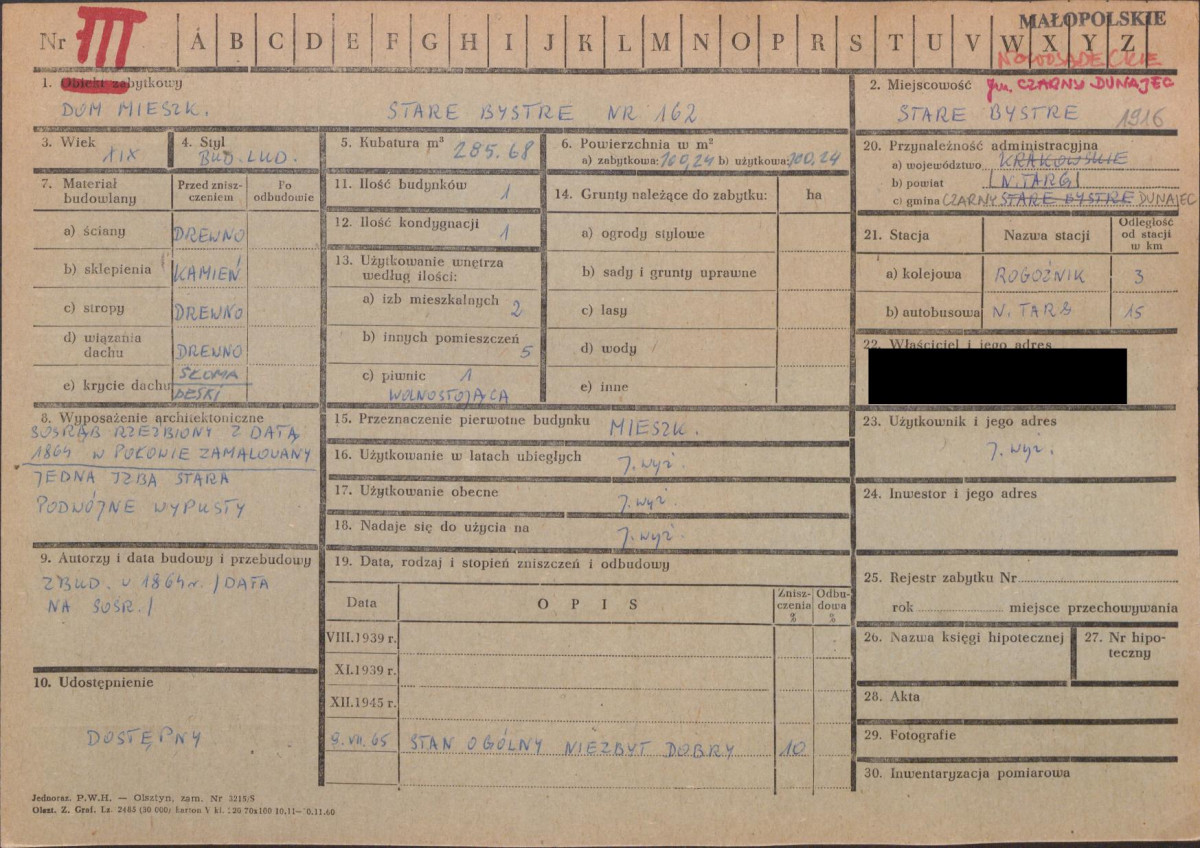 MAŁOPOLSKIE
Nr III A B C D E F G H I J K L M N O P R S T U V W X Y Z
NOWOSĄDECKIE
1. Obiekt zabytkowy
DOM MIESZK. STARE BYSTRE NR 162
2. Miejscowość gm. CZARNY DUNAJEC
STARE BYSTRE 1916
3. Wiek XIX
4. Styl BUD. LUD.
5. Kubatura m³ 285.68
6. Powierzchnia w m²
a) zabytkowa: 100,24 b) użytkowa: 100,24
20. Przynależność administracyjna
a) województwo KRAKOWSKIE
b) powiat N. TARG
c) gmina CZARNY STARE BYSTRE DUNAJEC
7. Materiał budowlany
Przed zniszczeniem
Po odbudowie
a) ściany DREWNO
b) sklepienia KAMIEŃ
c) stropy DREWNO
d) wiązania dachu DREWNO
e) krycie dachu SŁOMA
DESKI
11. Ilość budynków 1
12. Ilość kondygnacji 1
13. Użytkowanie wnętrza
według ilości:
a) izb mieszkalnych 2
b) innych pomieszczeń 5
c) piwnic 1
WOLNOSTOJĄCA
14. Grunty należące do zabytku: ha
a) ogrody stylowe
b) sady i grunty uprawne
c) lasy
d) wody
e) inne
21. Stacja Nazwa stacji Odległość od stacji w km
a) kolejowa ROGOŹNIK 3
b) autobusowa N. TARG 15
22. Właściciel i jego adres
8. Wyposażenie architektoniczne
SOSRĄB RZEŹBIONY Z DATĄ
1864 W POŁOWIE ZAMALOWANY
JEDNA IZBA STARA
PODWÓJNE WYPUSTY
15. Przeznaczenie pierwotne budynku MIESZK.
16. Użytkowanie w latach ubiegłych J. wyż.
17. Użytkowanie obecne J. wyż.
18. Nadaje się do użycia na J. wyż.
23. Użytkownik i jego adres
J. wyż.
24. Inwestor i jego adres
9. Autorzy i data budowy i przebudowy
ZBUD. W 1864 r. /DATA
NA SOSR./
19. Data, rodzaj i stopień zniszczeń i odbudowy
Data O P I S Zniszczenia % Odbudowa %
VIII.1939 r.
XI.1939 r.
XII.1945 r.
9. VII. 65 STAN OGÓLNY NIEZBYT DOBRY 10
10. Udostępnienie
DOSTĘPNY
25. Rejestr zabytku Nr
rok miejsce przechowywania
26. Nazwa księgi hipotecznej
27. Nr hipoteczny
28. Akta
29. Fotografie
30. Inwentaryzacja pomiarowa
Jednoraz. P.W.H. — Olsztyn, zam. Nr 3215/S
Olszt. Z. Graf. Lz. 2485 (30 000) karton V kl. 120 70x100 10.11—